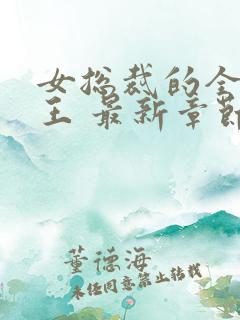 女总裁的全
王 最新章节
董德海
未经同意禁止转载